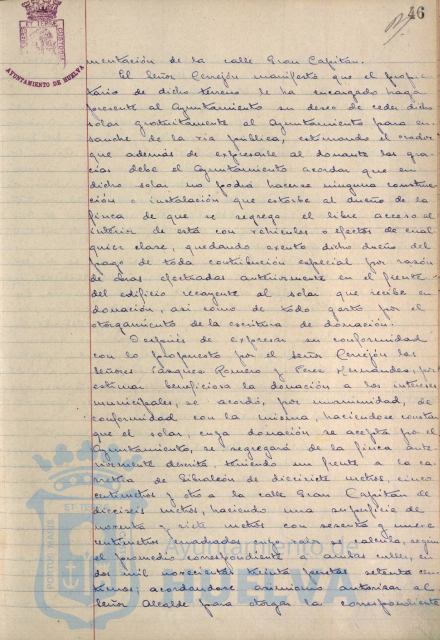 46
AYUNTAMIENTO DE HUELVA
mentación de la calle Gran Capitán.
El Señor Cerrejón manifestó que el propie-
tario de dicho terreno le ha encargado haga
presente al Ayuntamiento su deseo de ceder dicho
solar gratuitamente al Ayuntamiento para en-
sanche de la vía pública, estimando el orador
que además de expresarle al donante las gra-
cias debe el Ayuntamiento acordar que en
dicho solar no podrá hacerse ninguna construc-
ción o instalación que estorbe al dueño de la
finca de que se segrega el libre acceso al
interior de esta con vehículos o efectos de cual
quier clase, quedando exento dicho dueño del
pago de toda contribución especial por razón
de obras efectuadas anteriormente en el frente
del edificio recayente al solar que recibe en
donación, así como de todo gasto por el
otorgamiento de la escritura de donación.
Después de expresar su conformidad
con lo propuesto por el Señor Cerrejón los
Señores Vázquez Romero y Pérez Hernández, por
estimar beneficiosa la donación a los intereses
municipales, se acordó, por unanimidad, de
conformidad con la misma, haciéndose constar
que el solar, cuya donación se acepta por el
Ayuntamiento, se segregará de la finca ante
riormente descrita, teniendo un frente a la ca-
rretera de Gibraleón de diecisiete metros, cinco
centímetros y otro a la calle Gran Capitán de
dieciseis metros, haciendo una superficie de
noventa y siete metros con sesenta y nueve
centímetros cuadrados cuyo valor se calcula, según
el promedio correspondiente a ambas calles, en
dos mil novecientas treinta pesetas setenta cen-
timos; acordándose asimismo autorizar al
Señor Alcalde para otorgar la correspondiente
Ayuntamiento
HUELVA
PORTUS MARIS
ET TE